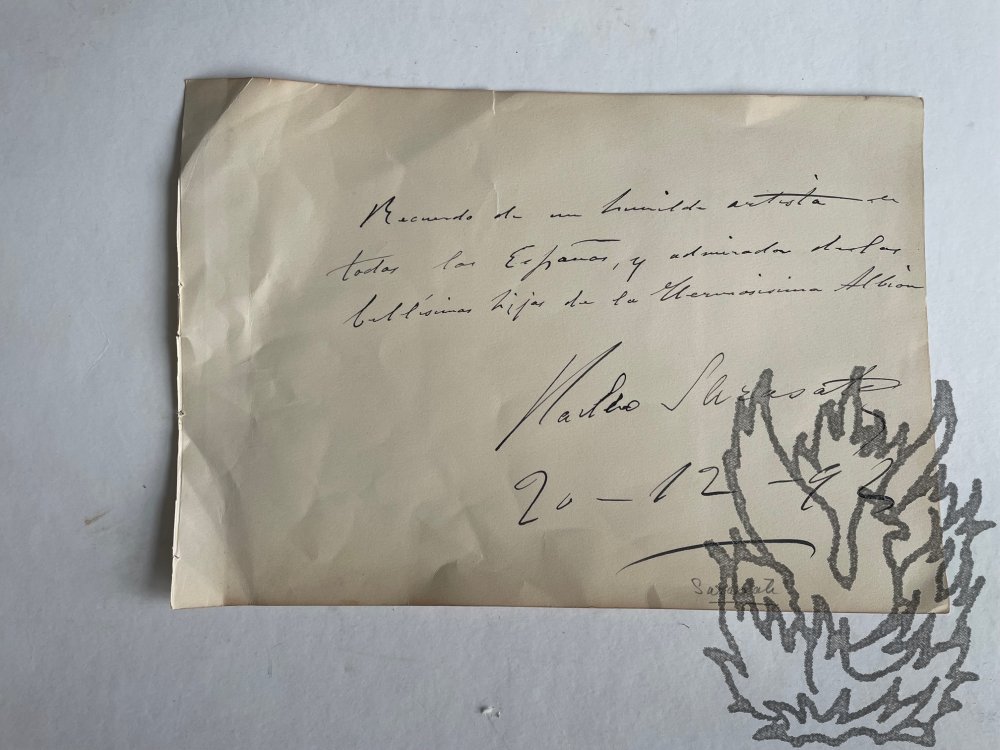 Recuerdo de un humilde artista de
todas las Españas, y admirador de las
bellísimas hijas de la Hermosisima Albion
Pablo Sarasate
20-12-92
Sarasate